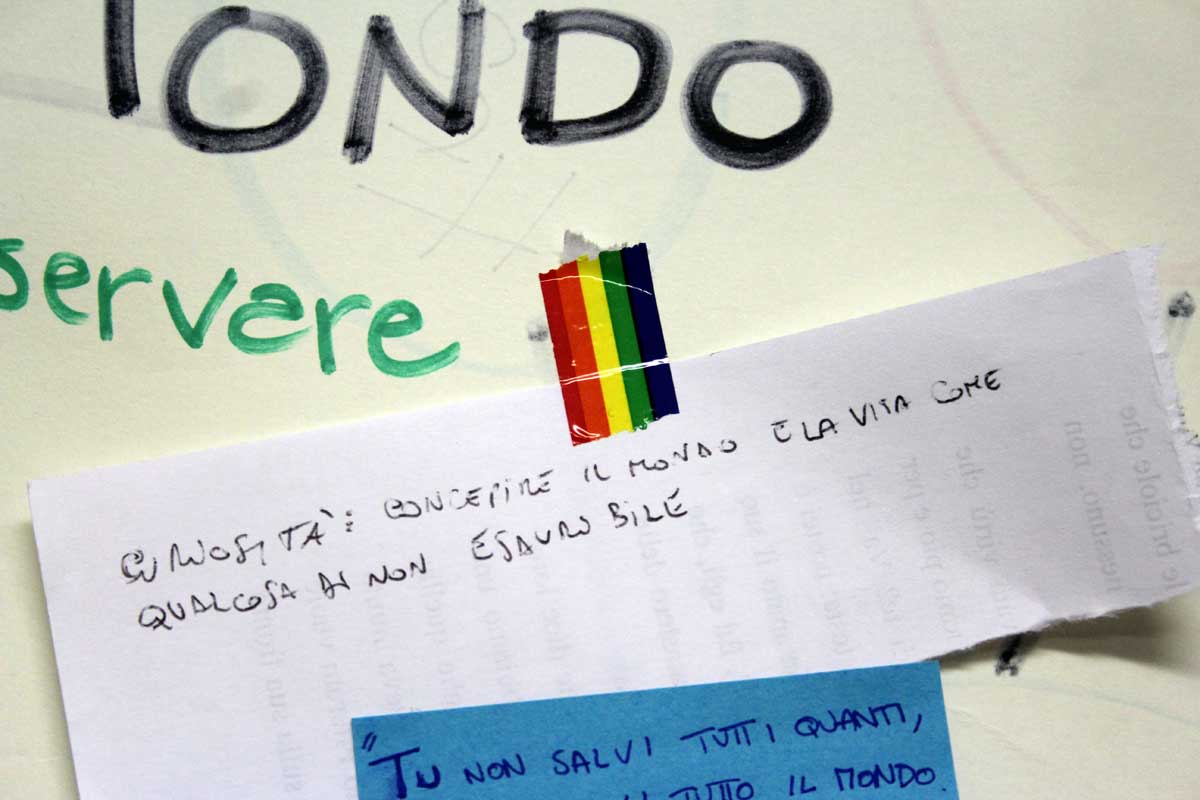 MONDO
servare
CURIOSITÀ: CONCEPIRE IL MONDO E LA VITA COME
QUALCOSA DI NON ESAURIBILE
"TU NON SALVI TUTTI QUANTI,
TUTTO IL MONDO.